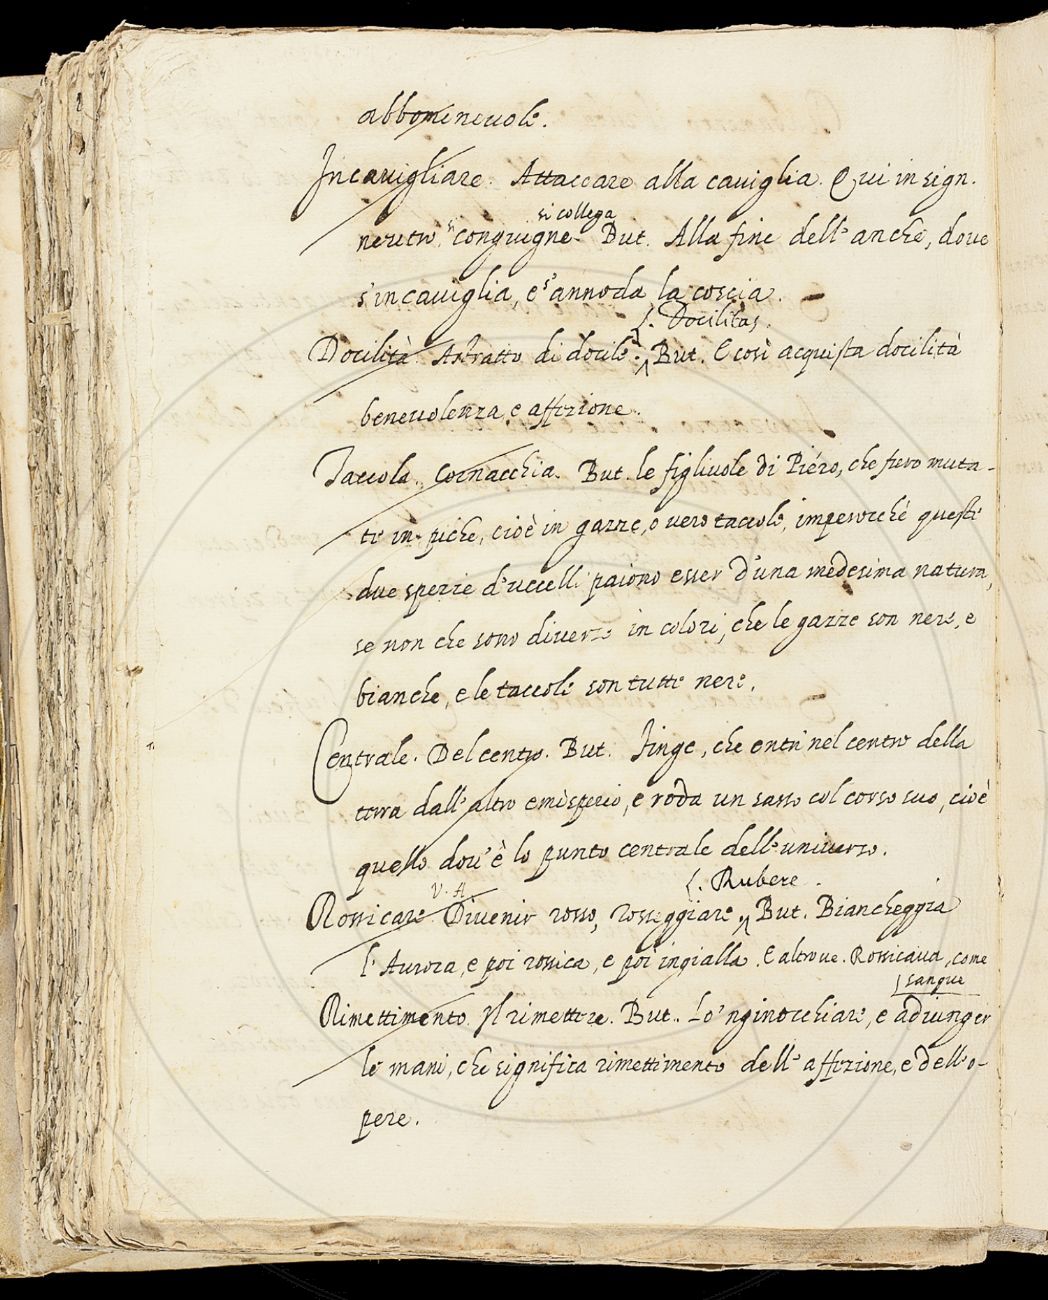 abbomineuole.
Incauigliare. Attaccare alla cauiglia. Qui in sign.
si collega
neutro, si congiugne. But. Alla fine dell'anche, doue
s'incauiglia, e s'annoda la coscia.
L. Docilitas.
Docilità Astratto di docile. But. E così acquista docilità
beneuolenza, e affezione.
Taccola. Cornacchia. But. le figliuole di Piero, che furo muta-
te in piche, cioè in gazze, o uero taccole, imperocchè queste
due spezie d'uccelli paiono esser d'una medesima natura,
se non che sono diuerse in colori, che le gazze son nere, e
bianche, e le taccole son tutte nere.
Centrale. Del centro. But. Finge, che entri nel centro della
terra dall'altro emisperio, e roda un sasso col corso suo, cioè
quello dou'è lo punto centrale dell'uniuerso.
V. A. L. Rubere.
Rossicare Diuenir rosso, rosseggiare, But. Biancheggia
l'Aurora, e poi rossica, e poi ingialla. E altroue. Rossicaua, come
sangue
Rimettimento. Il rimettere. But. Lo 'nginocchiare, e adiunger
le mani, che significa rimettimento dell'affezione, e dell'o-
pere.